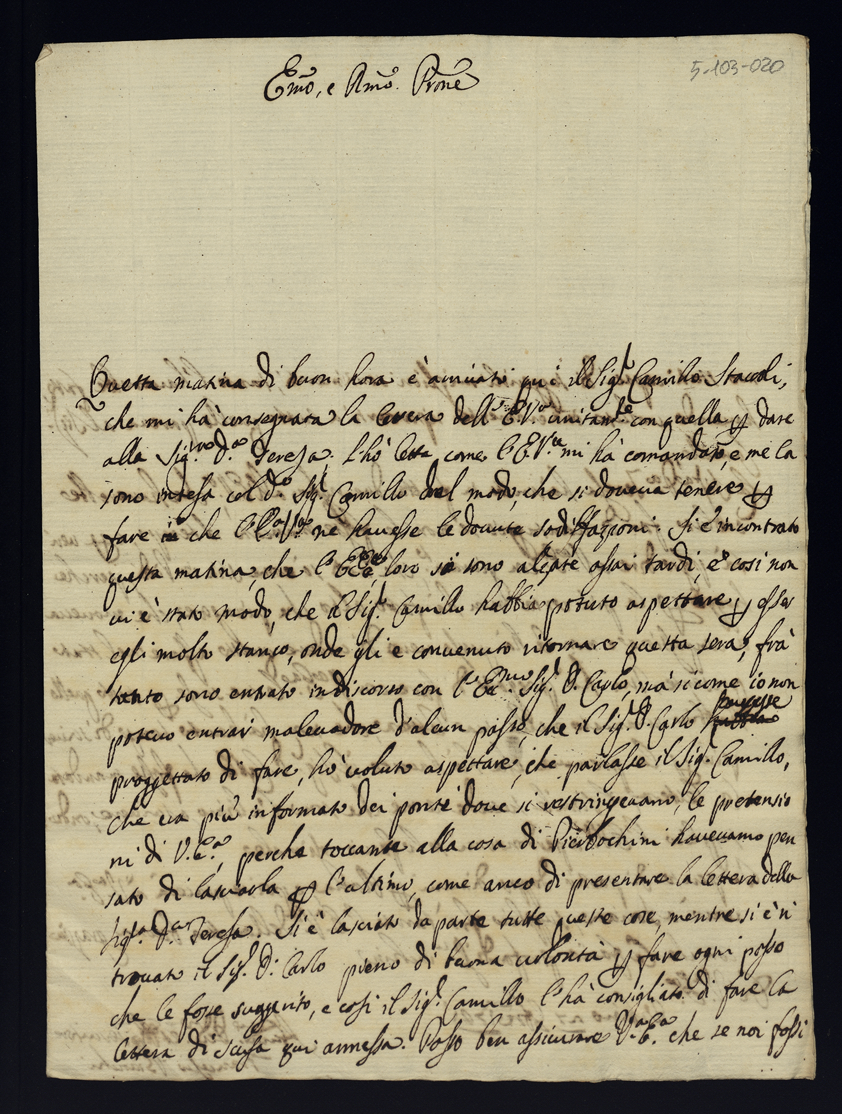 5-103-020
Em̃o, e Rm̃o. Prõne
Questa matina di buon hora è arrivato qui il Sigʳ. Camillo Stacoli,
che mi hà consegnata la lettera dell' E.Vᵃ unitamᵗᵉ con quella ꝑ dare
alla Sigʳᵃ Dᵃ Teresa. L'hò letta come l'E.Vᵃ mi hà comandato, e me la
sono intesa col dᵒ Sigʳ. Camillo del modo, che si doveva tenere ꝑ
fare che l'E.Vᵃ ne havesse le dovute sodisfazzioni. Si è incontrato
questa matina, che l'EE loro si sono alzate assai tardi, e così non
vi è stato modo, che il Sigʳ. Camillo habbia potuto aspettare ꝑ esser
egli molto stanco, onde gli e convenuto ritornare questa sera; frà
tanto sono entrato in discorso con l'Ecc.ᵐᵒ Sigʳ D. Carlo, mà si come io non
potevo entrar malevadore d'alcun passo, che il Sigʳ. D. Carlo havesse
proggettato di fare, hò voluto aspettare, che parlasse il Sigʳ. Camillo,
che era più informato dei ponti dove si restringevano le pretensio
ni di V.Eᵃ, perche toccante alla cosa di havevamo pen
sato di lasciarla ꝑ l'ultimo, come anco di presentare la lettera della
Sigʳᵃ Dᵃ Teresa. Si è lasciato da parte tutte queste cose, mentre si è ri
trovato il Sigʳ. D. Carlo pieno di buona volontà ꝑ fare ogni passo
che le fosse suggerito, e così il Sigʳ. Camillo l'hà consigliato di fare la
lettera di scusa qui annessa. Posso ben assicurare V.ᵃE.ᵃ che se noi fossi